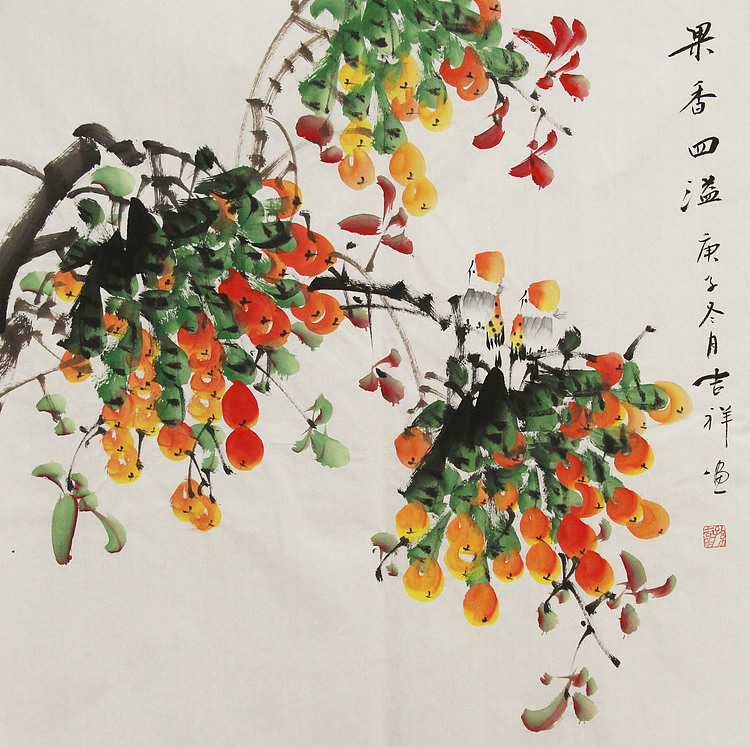 果香四溢 庚子冬月吉祥画